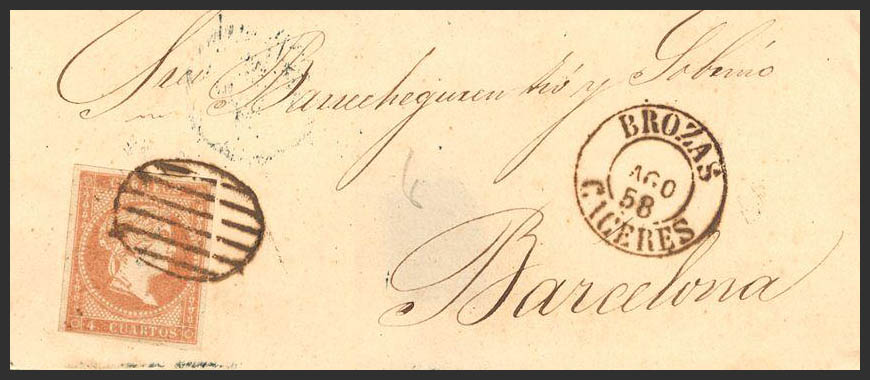 Sres Barrecheguren tio y Sobrino
BROZAS
AGO
58
CACERES
Barcelona
4 CUARTOS